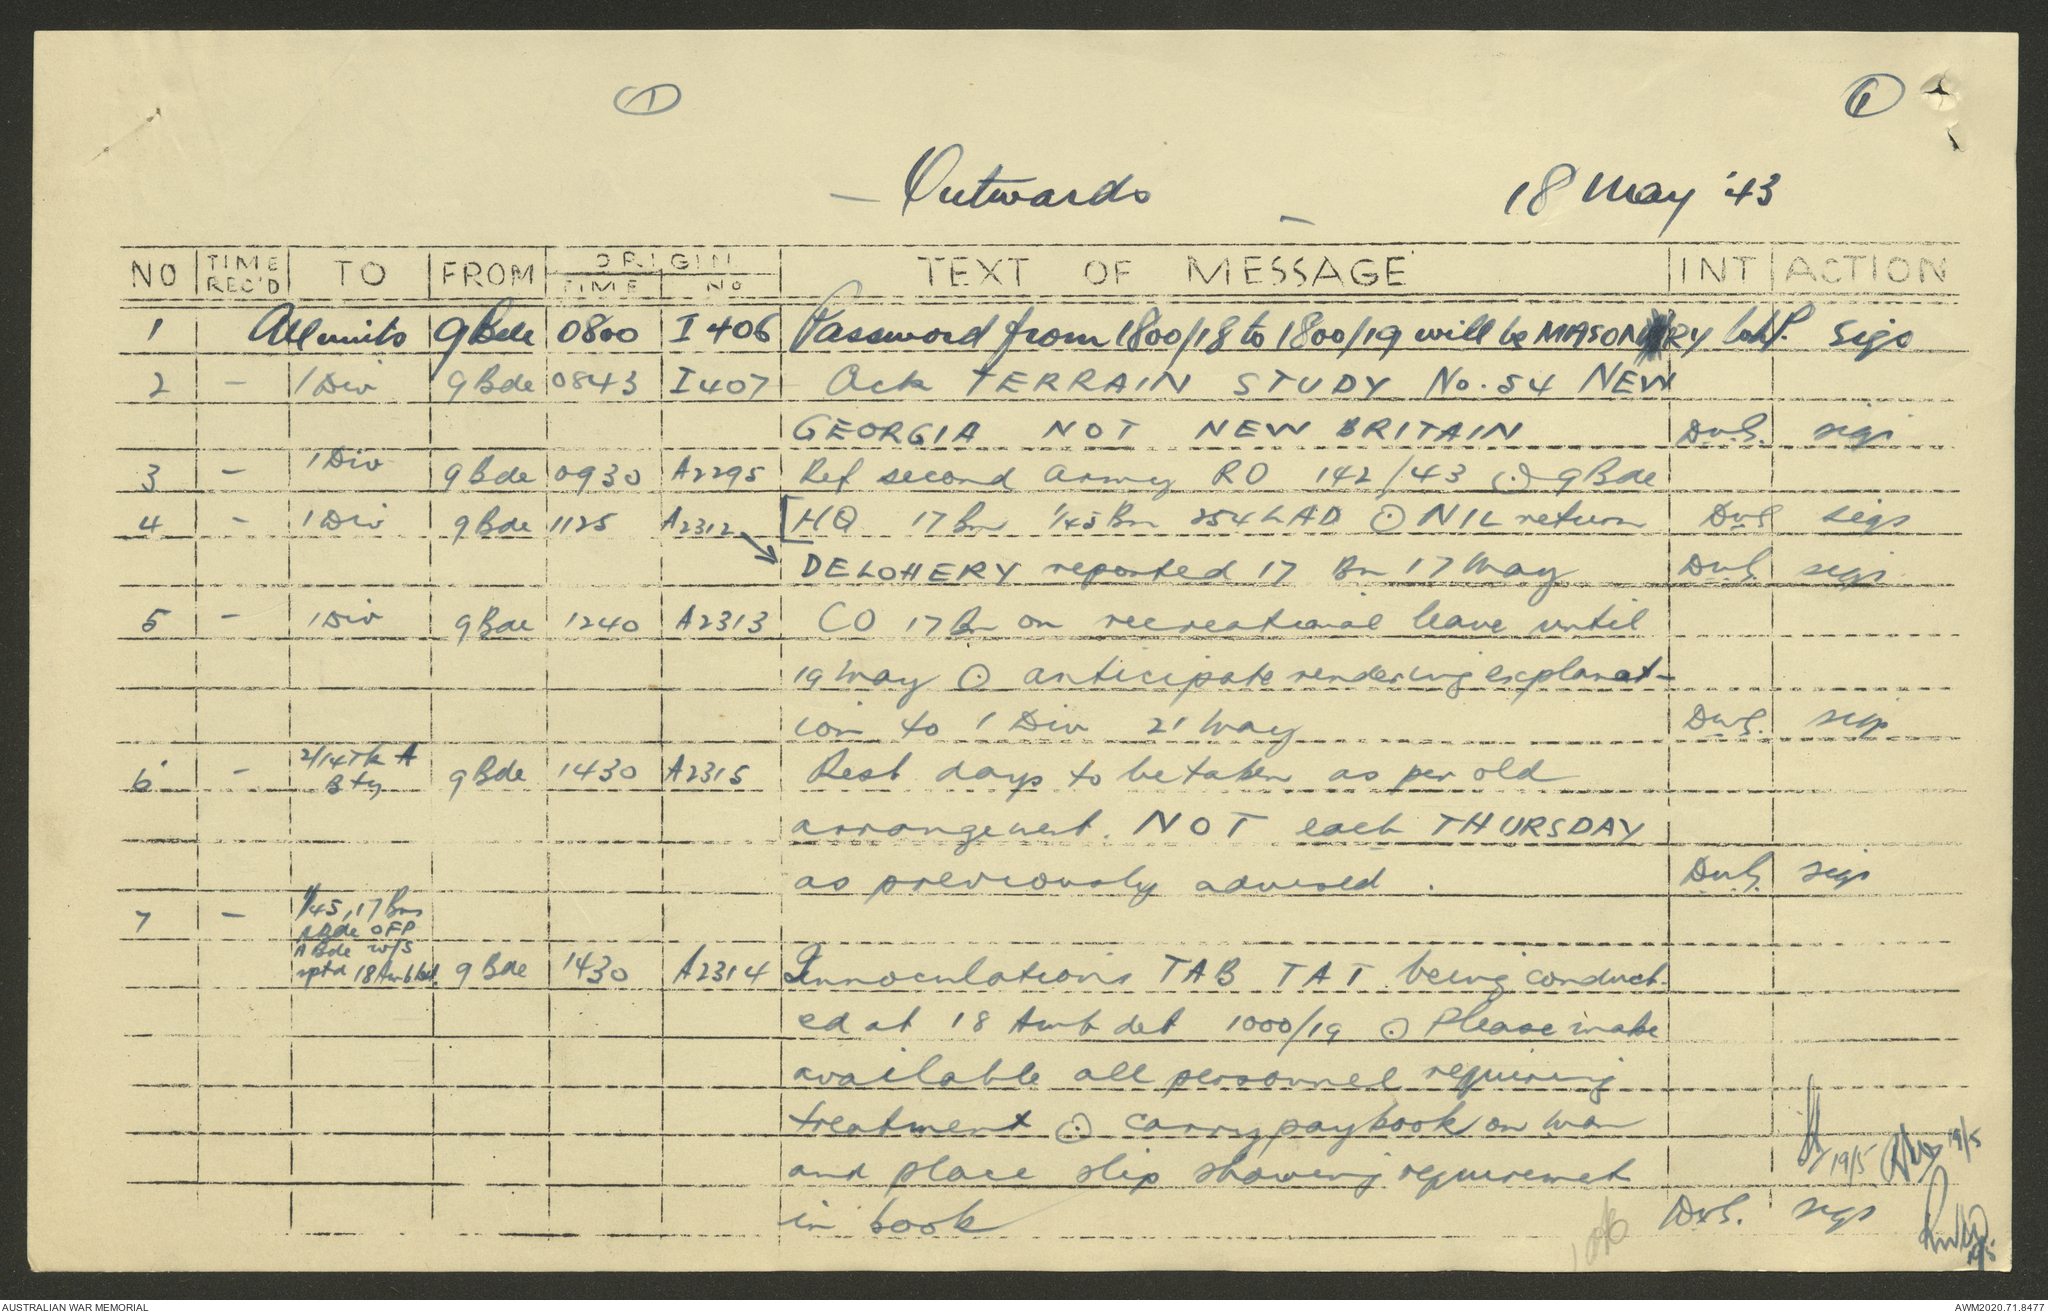 1
1
- Outwards -
18 May '43
NO | TIME REC'D | TO | FROM | ORIGIN TIME | ORIGIN No | TEXT OF MESSAGE | INT | ACTION
1 All units 9 Bde 0800 I 406 Password from 1800/18 to 1800/19 will be MASONRY Sigs
2 - 1 Div 9 Bde 0843 I 407 Ack TERRAIN STUDY No. 54 NEW
GEORGIA NOT NEW BRITAIN DWS. sigs
3 - 1 Div 9 Bde 0930 A2295 Ref second army RO 142/43 ⊙ 9 Bde
4 - 1 Div 9 Bde 1125 A2312 [HQ 17 Bn 1/45 Bn 254 LAD ⊙ NIL return DWS sigs
DELOHERY reported 17 Bn 17 May DWS. sigs
5 - 1 Div 9 Bde 1240 A2313 CO 17 Bn on recreational leave until
19 May ⊙ anticipate rendering explanat-
ion to 1 Div 21 May DWS. sigs
6 - 2/14 Tk A
Bty 9 Bde 1430 A2315 Rest days to be taken as per old
arrangement. NOT each THURSDAY
as previously advised. DWS. sigs
7 - 1/45, 17 Bns
A Bde OFP
A Bde w/s
rptd 18 Amb 9 Bde 1430 A2314 Innoculations TAB TAT being conduct-
ed at 18 Amb det 1000/19 ⊙ Please make
available all personnel requiring
treatment ⊙ carry paybook on man
and place slip showing requiremet
19/5 19/5
in book DWS. sigs
19/5
AUSTRALIAN WAR MEMORIAL
AWM2020.71.8477